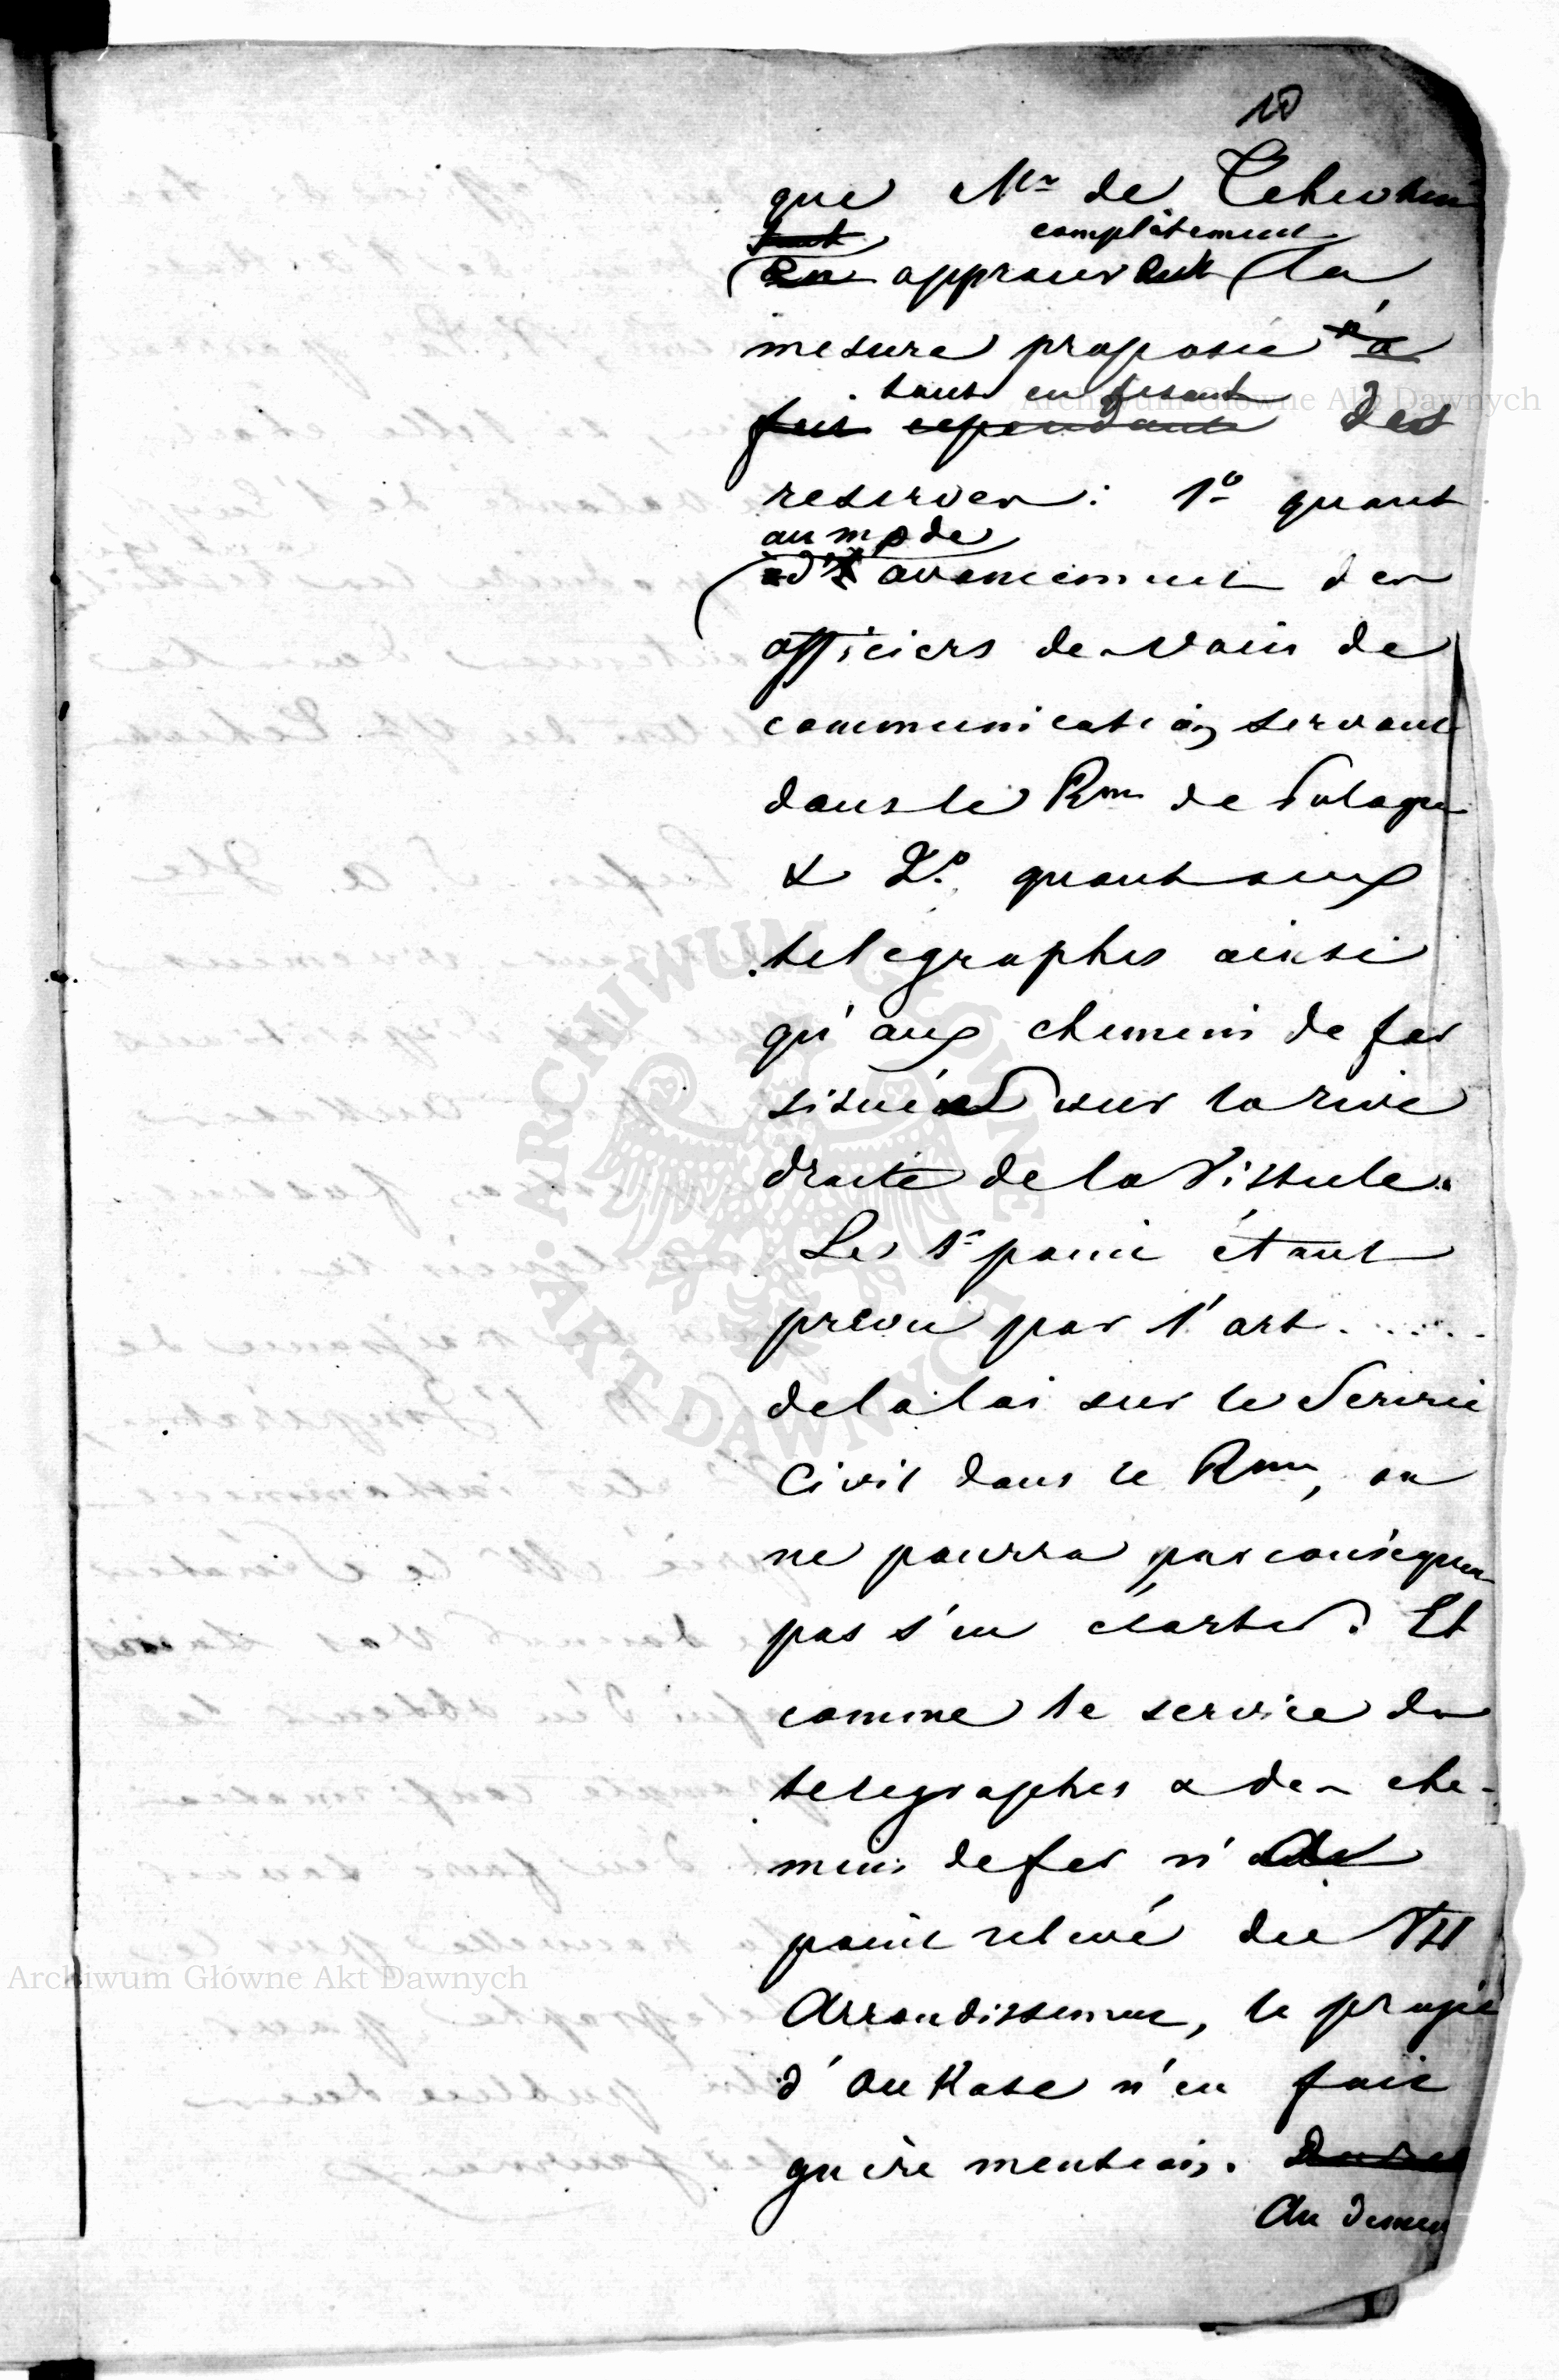 10
que Mr de Tchevkin
tout complètement
en approuvant la
mesure proposée n'a
tout en fesant
fait cependant des
reserves: 1o quant
au mode
d'avancement des
officiers de voies de
communication servant
dans le Rme de Pologne
& 2o quant aux
telegraphes ainsi
qu'aux chemins de fer
situés sur la rive
droite de la Vistule.
Le 1r point étant
prevu par l'art. . . . . .
de la loi sur le Service
Civil dans le Rme, on
ne pourra par conséquen
pas s'en écarter. Et
comme le service des
telegraphes & des che-
mins de fer n'
point relevé du XIII
Arrondissement, le projet
d'oukase n'en fait
guère mention.
Au demeu
Archiwum Główne Akt Dawnych
ARCHIWUM GŁÓWNE AKT DAWNYCH
Archiwum Główne Akt Dawnych